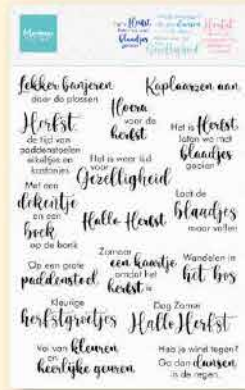 Lekker banjeren
door de plassen
Kaplaarzen aan
Hoera
voor de
herfst
Herfst
de tijd van
paddenstoelen
eikeltjes en
kastanjes
Het is Herfst
laten we met
blaadjes
gooien
Het is weer tijd
voor
Gezelligheid
Met een
dekentje
en een
boek
op de bank
Hallo Herfst
Laat de
blaadjes
maar vallen
Op een grote
paddenstoel
Zomaar
een kaartje
omdat het
herfst is
Wandelen in
het bos
Kleurige
herfstgroetjes
Dag Zomer
Hallo Herfst
Vol van kleuren
en
heerlijke geuren
Heb je wind tegen?
Ga dan dansen
in de regen